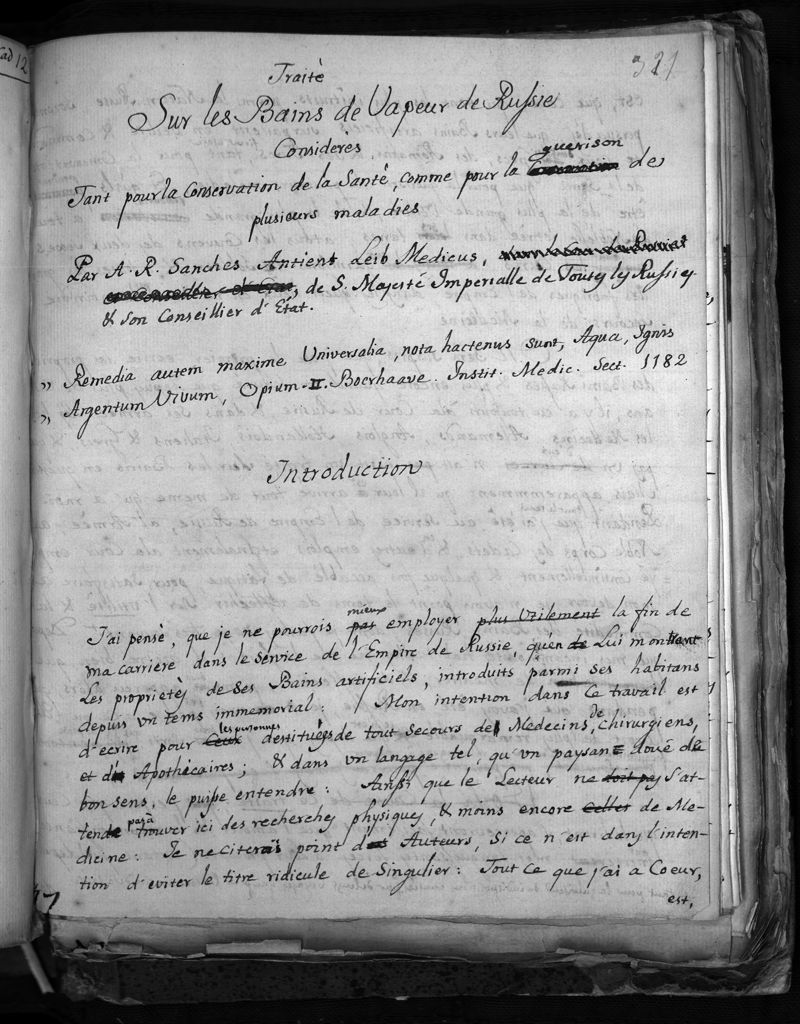 321
Traité
Sur les Bains de Vapeur de Russie
Considerès
guerison
Tant pour la Conservation de la Santé, comme pour la de
plusieurs maladies
Par A. R. Sanches Antient Leib Medicus,
de S. Majesté Imperialle de Toutes les Russies
& son Conseillier d'Etat.
" Remedia autem maxime Universalia, nota hactenus sunt, Aqua, Ignis
" Argentum Vivum, Opium. II. Boerhaave. Instit. Medic. Sect. 1182
Introduction
mieux
J'ai pensé, que je ne pourrois pas employer plus Utilement la fin de
ma carriere dans le Service de l'Empire de Russie, qu'en de Lui montrant
Les proprietès de ses Bains artificiels, introduits parmi ses habitans
depuis un tems immemorial: Mon intention dans ce travail est
les personnes
d'ecrire pour Ceux destituées de tout secours de Medecins, de chirurgiens,
et d' Apothécaires; & dans un langage tel, qu'un paysan doué de
bon sens, le puisse entendre: Ainsi que le Lecteur ne doit pas s'at-
pas à
tende trouver ici des recherches physiques, & moins encore Celles de Me-
dicine: Je ne citerai point des Auteurs, Si ce n'est dans l'inten-
tion d'eviter le titre ridicule de Singulier: Tout ce que j'ai a Coeur,
est,